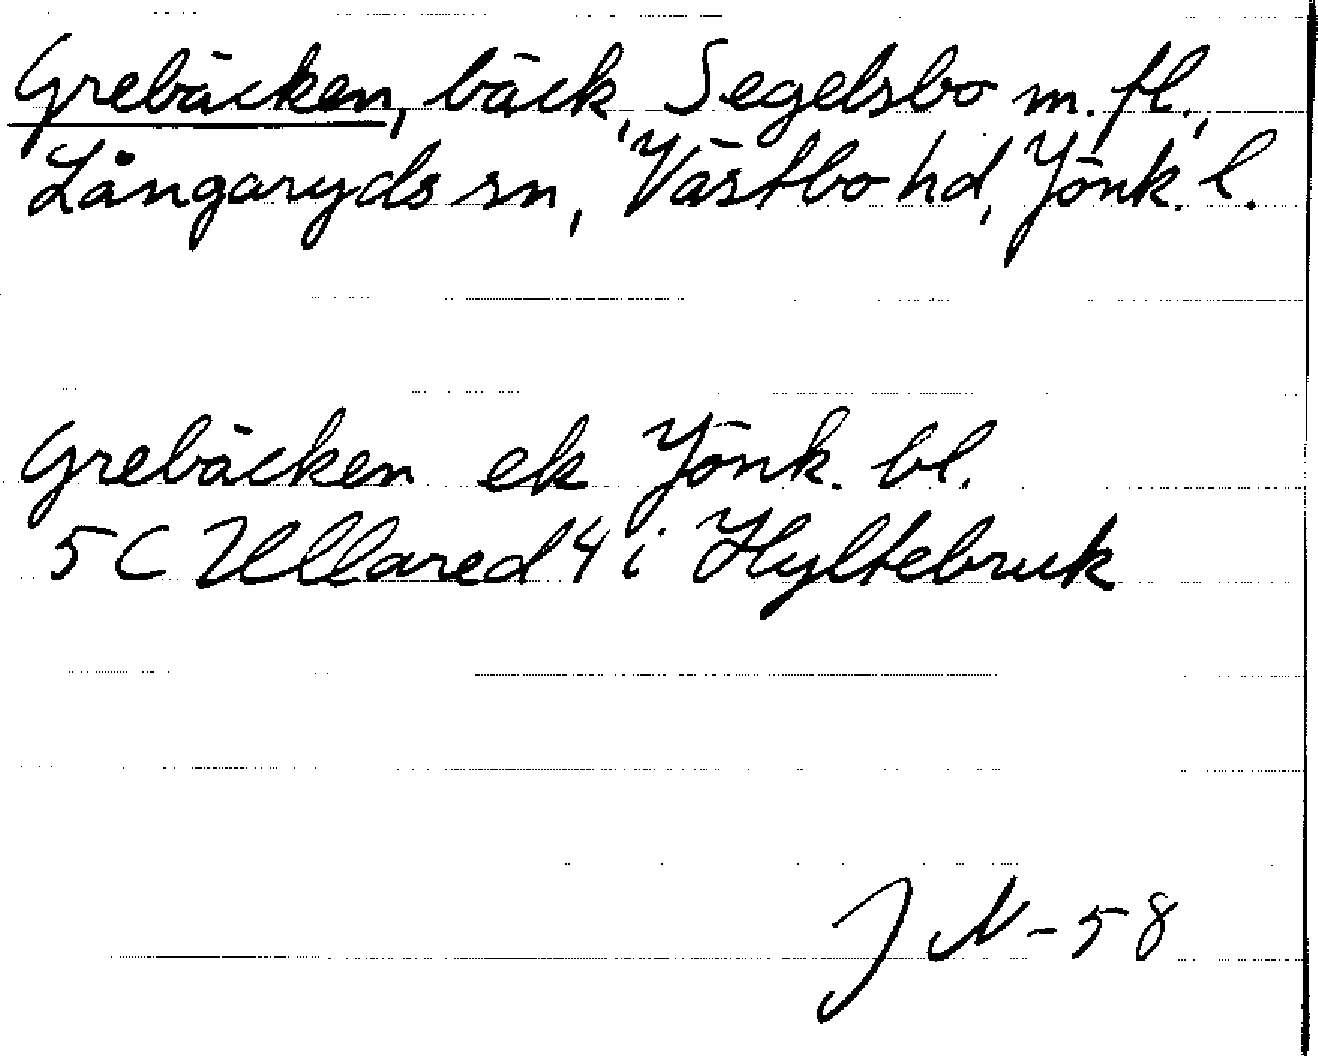 Grebäcken, bäck, Segelsbo m. fl.,
Långaryds sn, Västbo hd, Jönk. l.
Grebäcken ek Jönk. bl.
5C Ullared 4 i Hyltebruk
JN-58